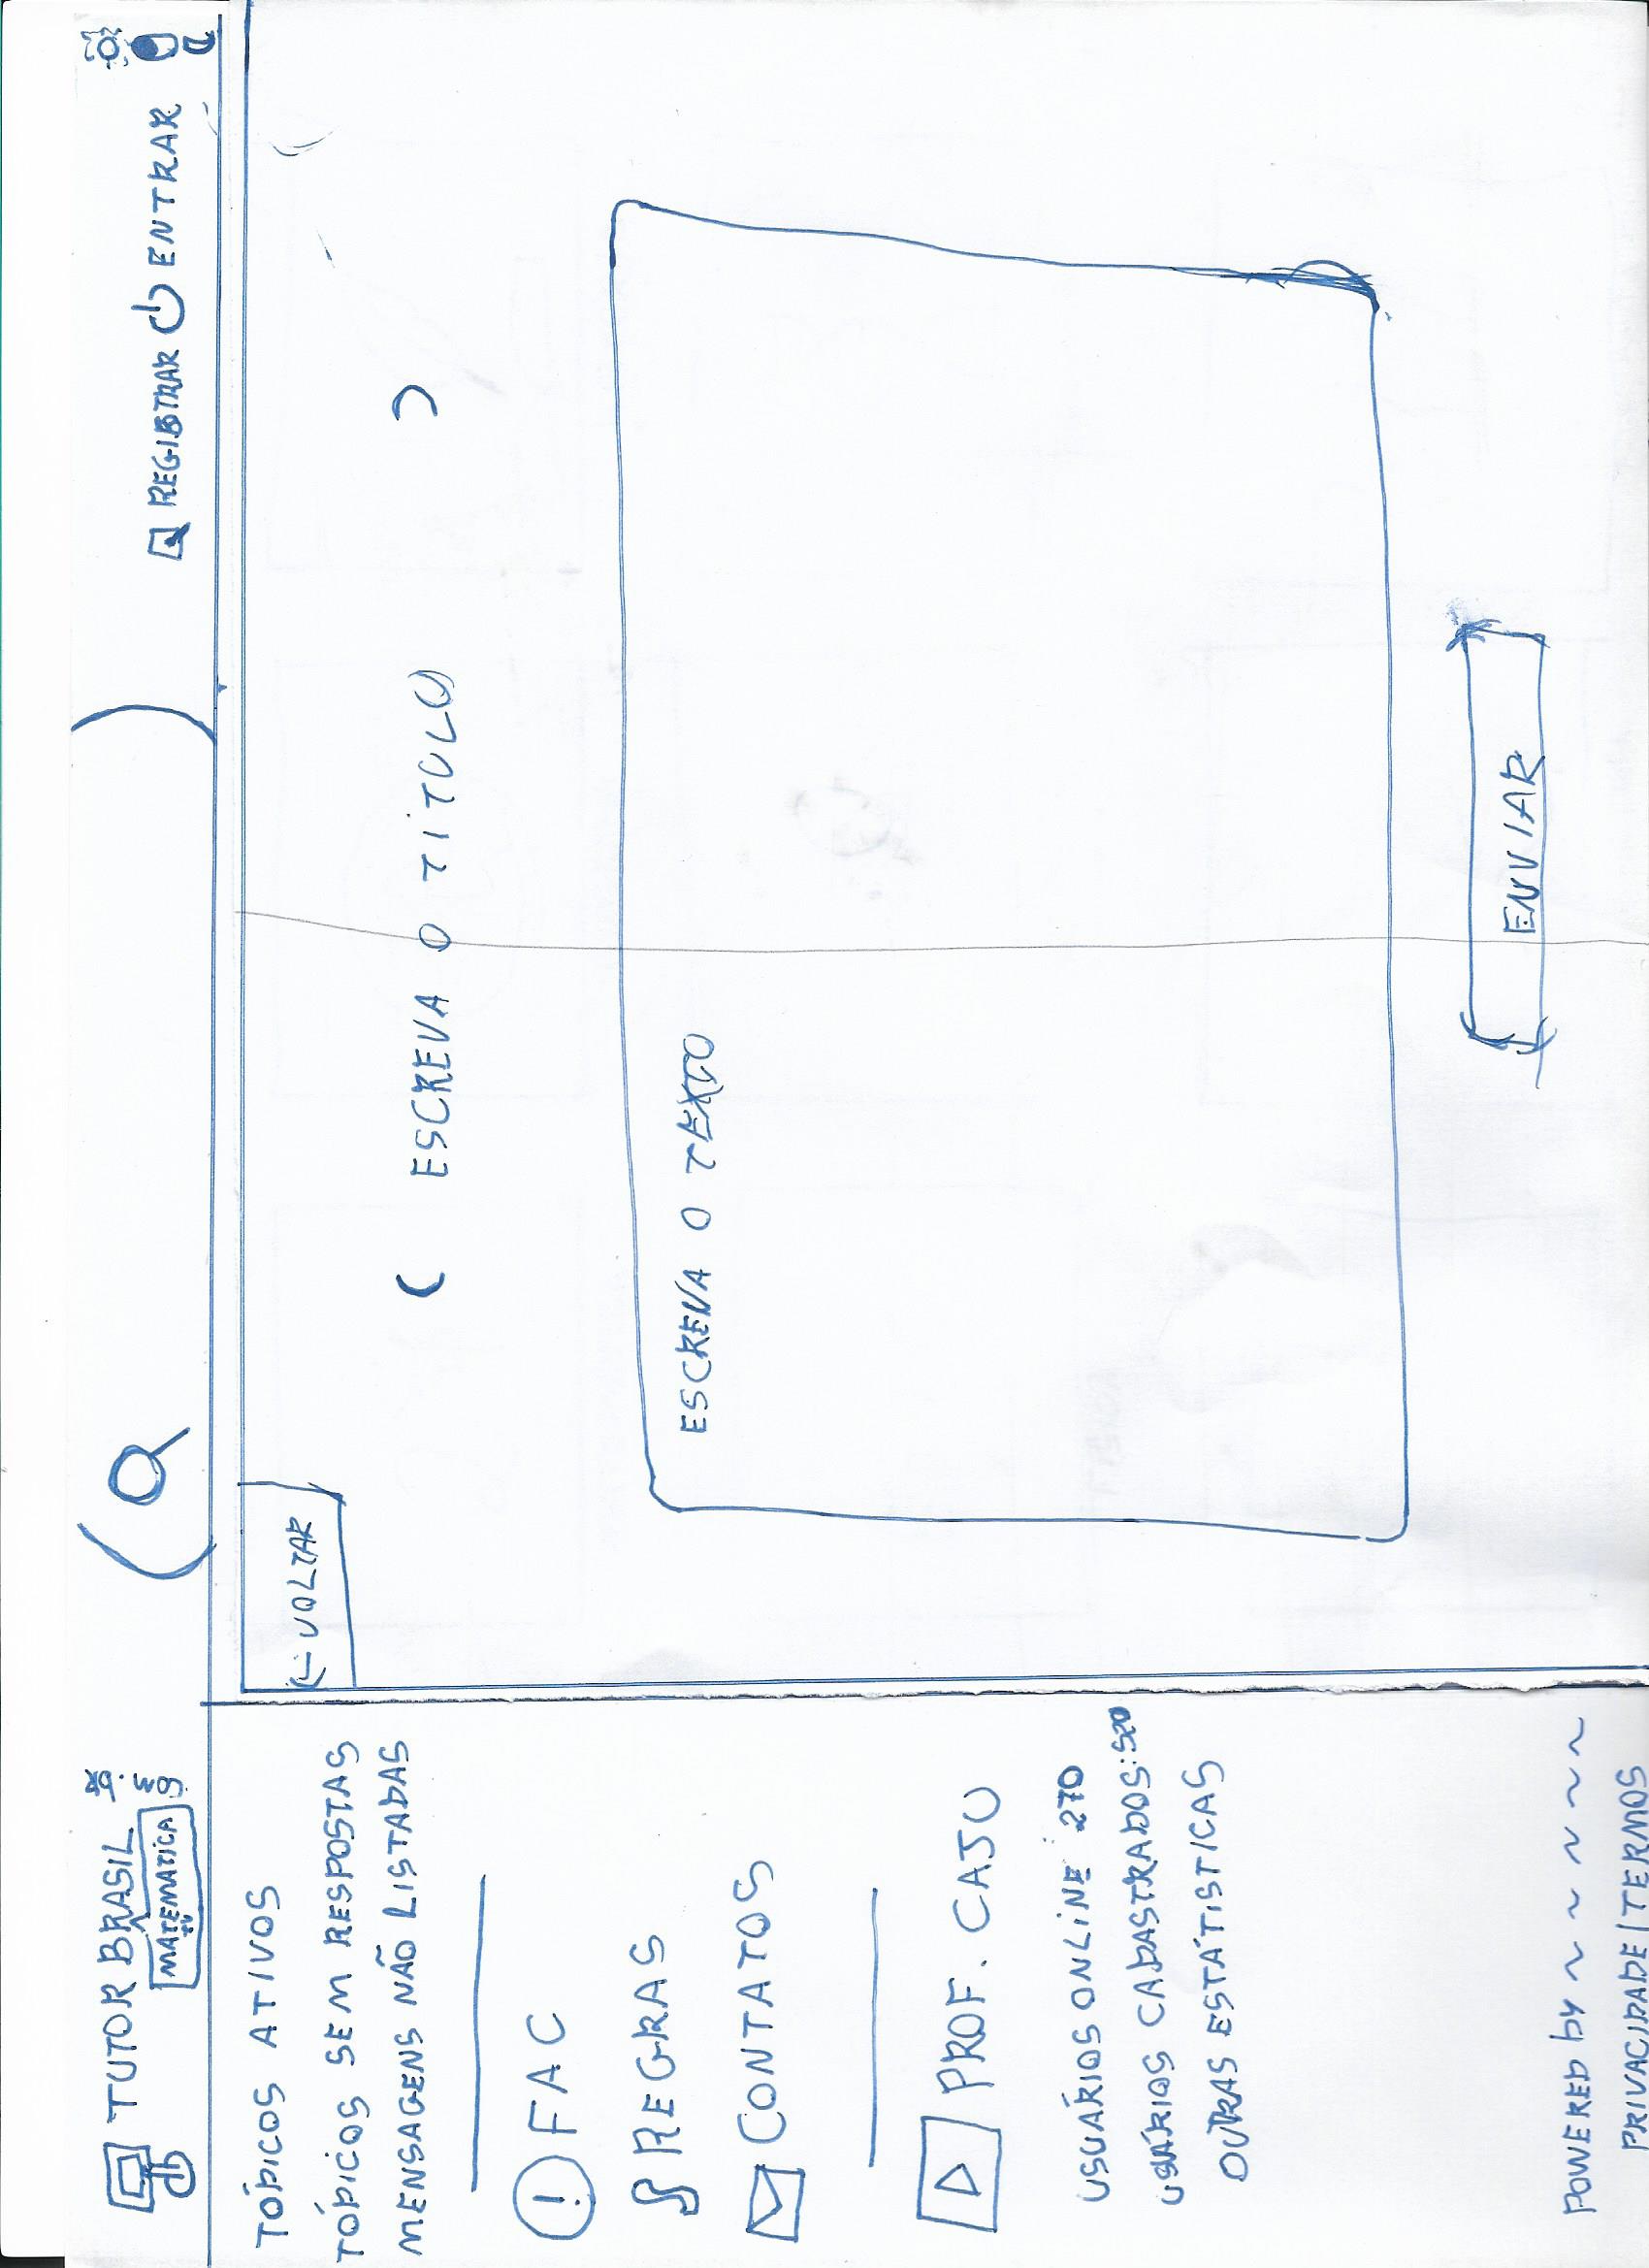 TUTOR BRASIL
MATEMATICA
REGISTRAR
ENTRAR
TÓPICOS ATIVOS
TÓPICOS SEM RESPOSTAS
MENSAGENS NÃO LISTADAS
FAC
REGRAS
CONTATOS
PROF. CAJU
USUÁRIOS ONLINE : 270
USUÁRIOS CADASTRADOS: 520
OUTRAS ESTÁTISTICAS
POWERED by ~ ~ ~ ~ ~
PRIVACIDADE | TERMOS
← VOLTAR
( ESCREVA O TÍTULO )
ESCREVA O TEXTO
ENVIAR